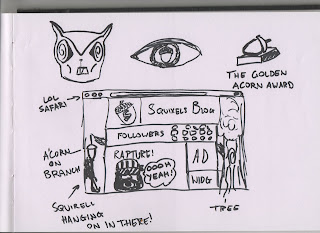 THE GOLDEN
ACORN AWARD
LOL
SAFARI
SQUIRELS BLOG
FOLLOWERS
A'CORN
ON
BRANCH
RAPTURE!
OOOH
YEAH!
AD
WIDG
SQUIRELL
HANGING
ON IN THERE!
TREE